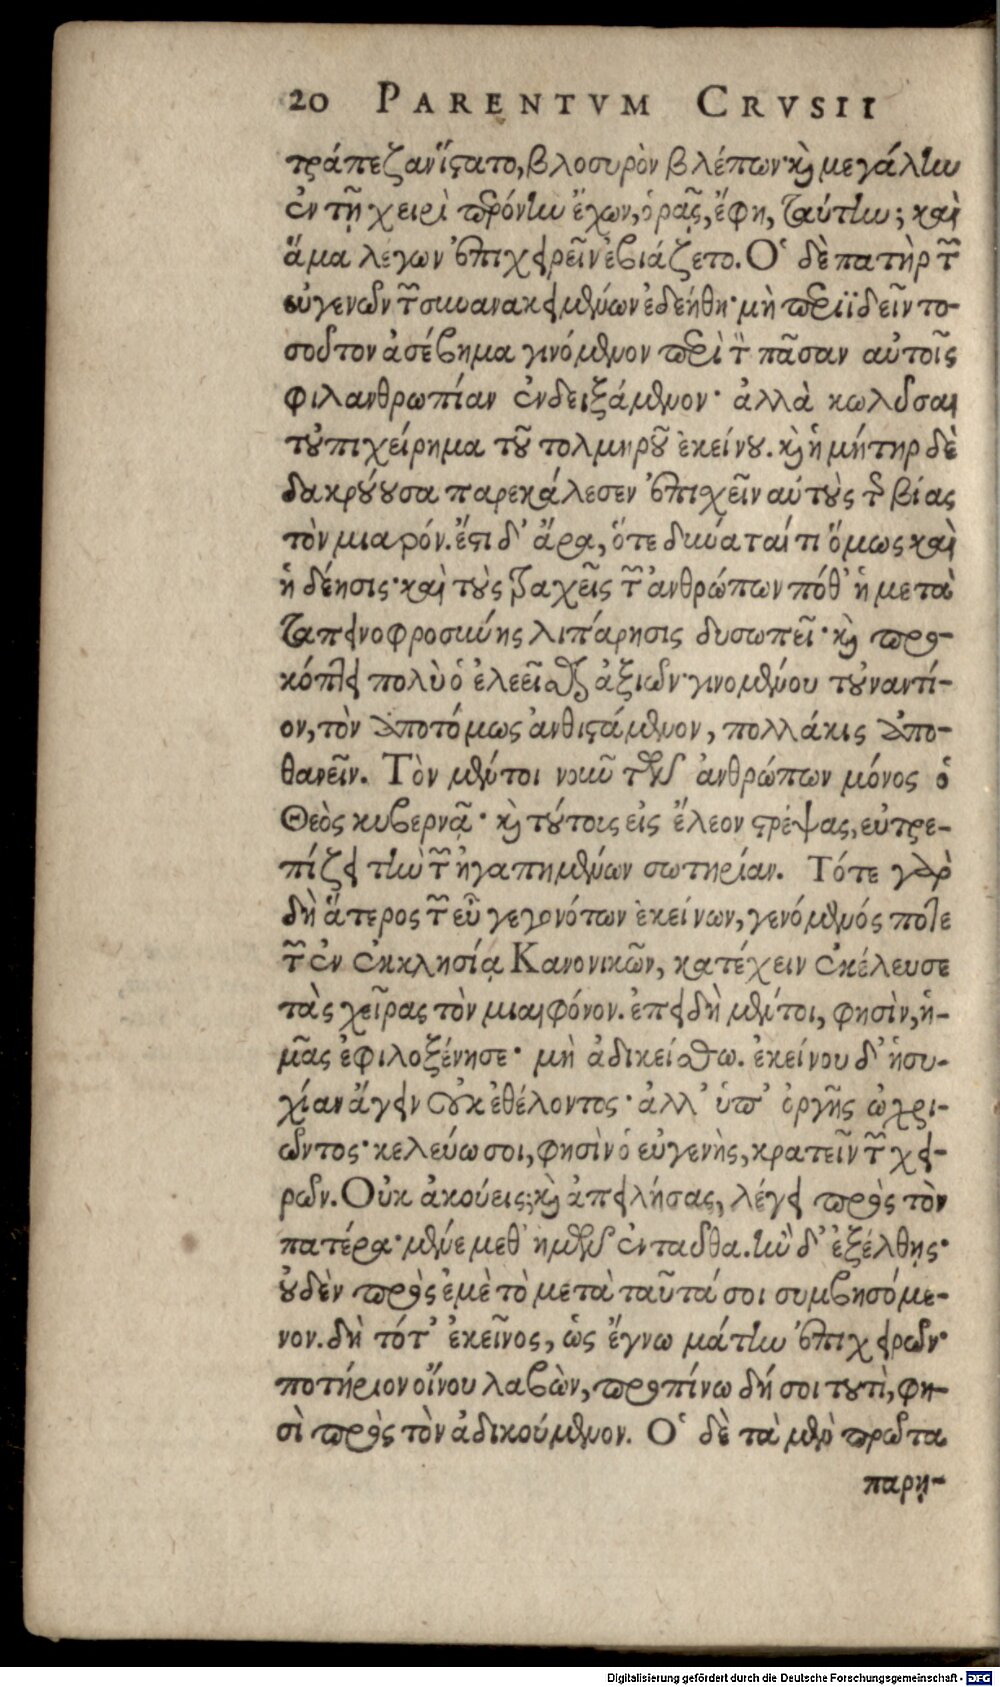 20 PARENTVM CRVSII
τράπεζ ἀνίϛατο, βλοσυρὸν βλέπων· καὶ μεγάλην
ἐν τῇ χειρὶ περόνην ἔχων, ὁρᾷς, ἔφη, ταύτην; καὶ
ἅμα λέγων ἐπιχειρεῖν ἐβιάζετο. Ὁ δὲ πατὴρ τῶν
εὐγενῶν τῶν συνανακειμένων ἐδεήθη· μὴ περιϊδεῖν το-
σοῦτον ἀσέβημα γινόμενον περὶ τὸν πᾶσαν αὐτοῖς
φιλανθρωπίαν ἐνδειξάμενον· ἀλλὰ κωλῦσαι
τοὐπιχείρημα τοῦ τολμηροῦ ἐκείνου. καὶ ἡ μήτηρ δὲ
δακρύουσα παρεκάλεσεν ἐπισχεῖν αὐτοὺς τῆς βίας
τὸν μιαρόν. ἔϛι δ' ἄρα, ὅτε δύναταί τι ὅμως καὶ
ἡ δέησις· καὶ τοὺς τραχεῖς τῶν ἀνθρώπων πόθ' ἡ μετὰ
ταπεινοφροσύνης λιπάρησις δυσωπεῖ· καὶ προ-
κόπτει πολὺ ὁ ἐλεεῖσθαι ἀξιῶν· γινομένου τοὐναντί-
ον, τὸν ἀποτόμως ἀνθιϛάμενον, πολλάκις ἀπο-
θανεῖν. Τὸν μέντοι νοῦν τῶν ἀνθρώπων μόνος ὁ
Θεὸς κυβερνᾷ· καὶ τούτοις εἰς ἔλεον ϛρέψας, εὐτρε-
πίζει τὴν τῶν ἠγαπημένων σωτηρίαν. Τότε γὰρ
δὴ ἅτερος τῶν εὖ γεγονότων ἐκείνων, γενόμενός ποτε
τῶν ἐν ἐκκλησίᾳ Κανονικῶν, κατέχειν ἐκέλευσε
τὰς χεῖρας τὸν μιαιφόνον. ἐπειδὴ μέντοι, φησὶν, ἡ-
μᾶς ἐφιλοξένησε· μὴ ἀδικείσθω. ἐκείνου δ' ἡσυ-
χίαν ἄγειν οὐκ ἐθέλοντος· ἀλλ' ὑπ' ὀργῆς ὠχρι-
ῶντος· κελεύω σοι, φησὶν ὁ εὐγενὴς, κρατεῖν τῶν χει-
ρῶν. Οὐκ ἀκούεις; καὶ ἀπειλήσας, λέγει πρὸς τὸν
πατέρα· μένε μεθ' ἡμῶν ἐνταῦθα. ἢν δ' ἐξέλθῃς·
οὐδὲν πρὸς ἐμὲ τὸ μετὰ ταῦτά σοι συμβησόμε-
νον. δὴ τότ' ἐκεῖνος, ὡς ἔγνω μάτην ἐπιχειρῶν·
ποτήριον οἴνου λαβὼν, προπίνω δή σοι τουτὶ, φη-
σὶ πρὸς τὸν ἀδικούμενον. Ὁ δὲ τὰ μὲν πρῶτα
παρῃ-
Digitalisierung gefördert durch die Deutsche Forschungsgemeinschaft - DFG